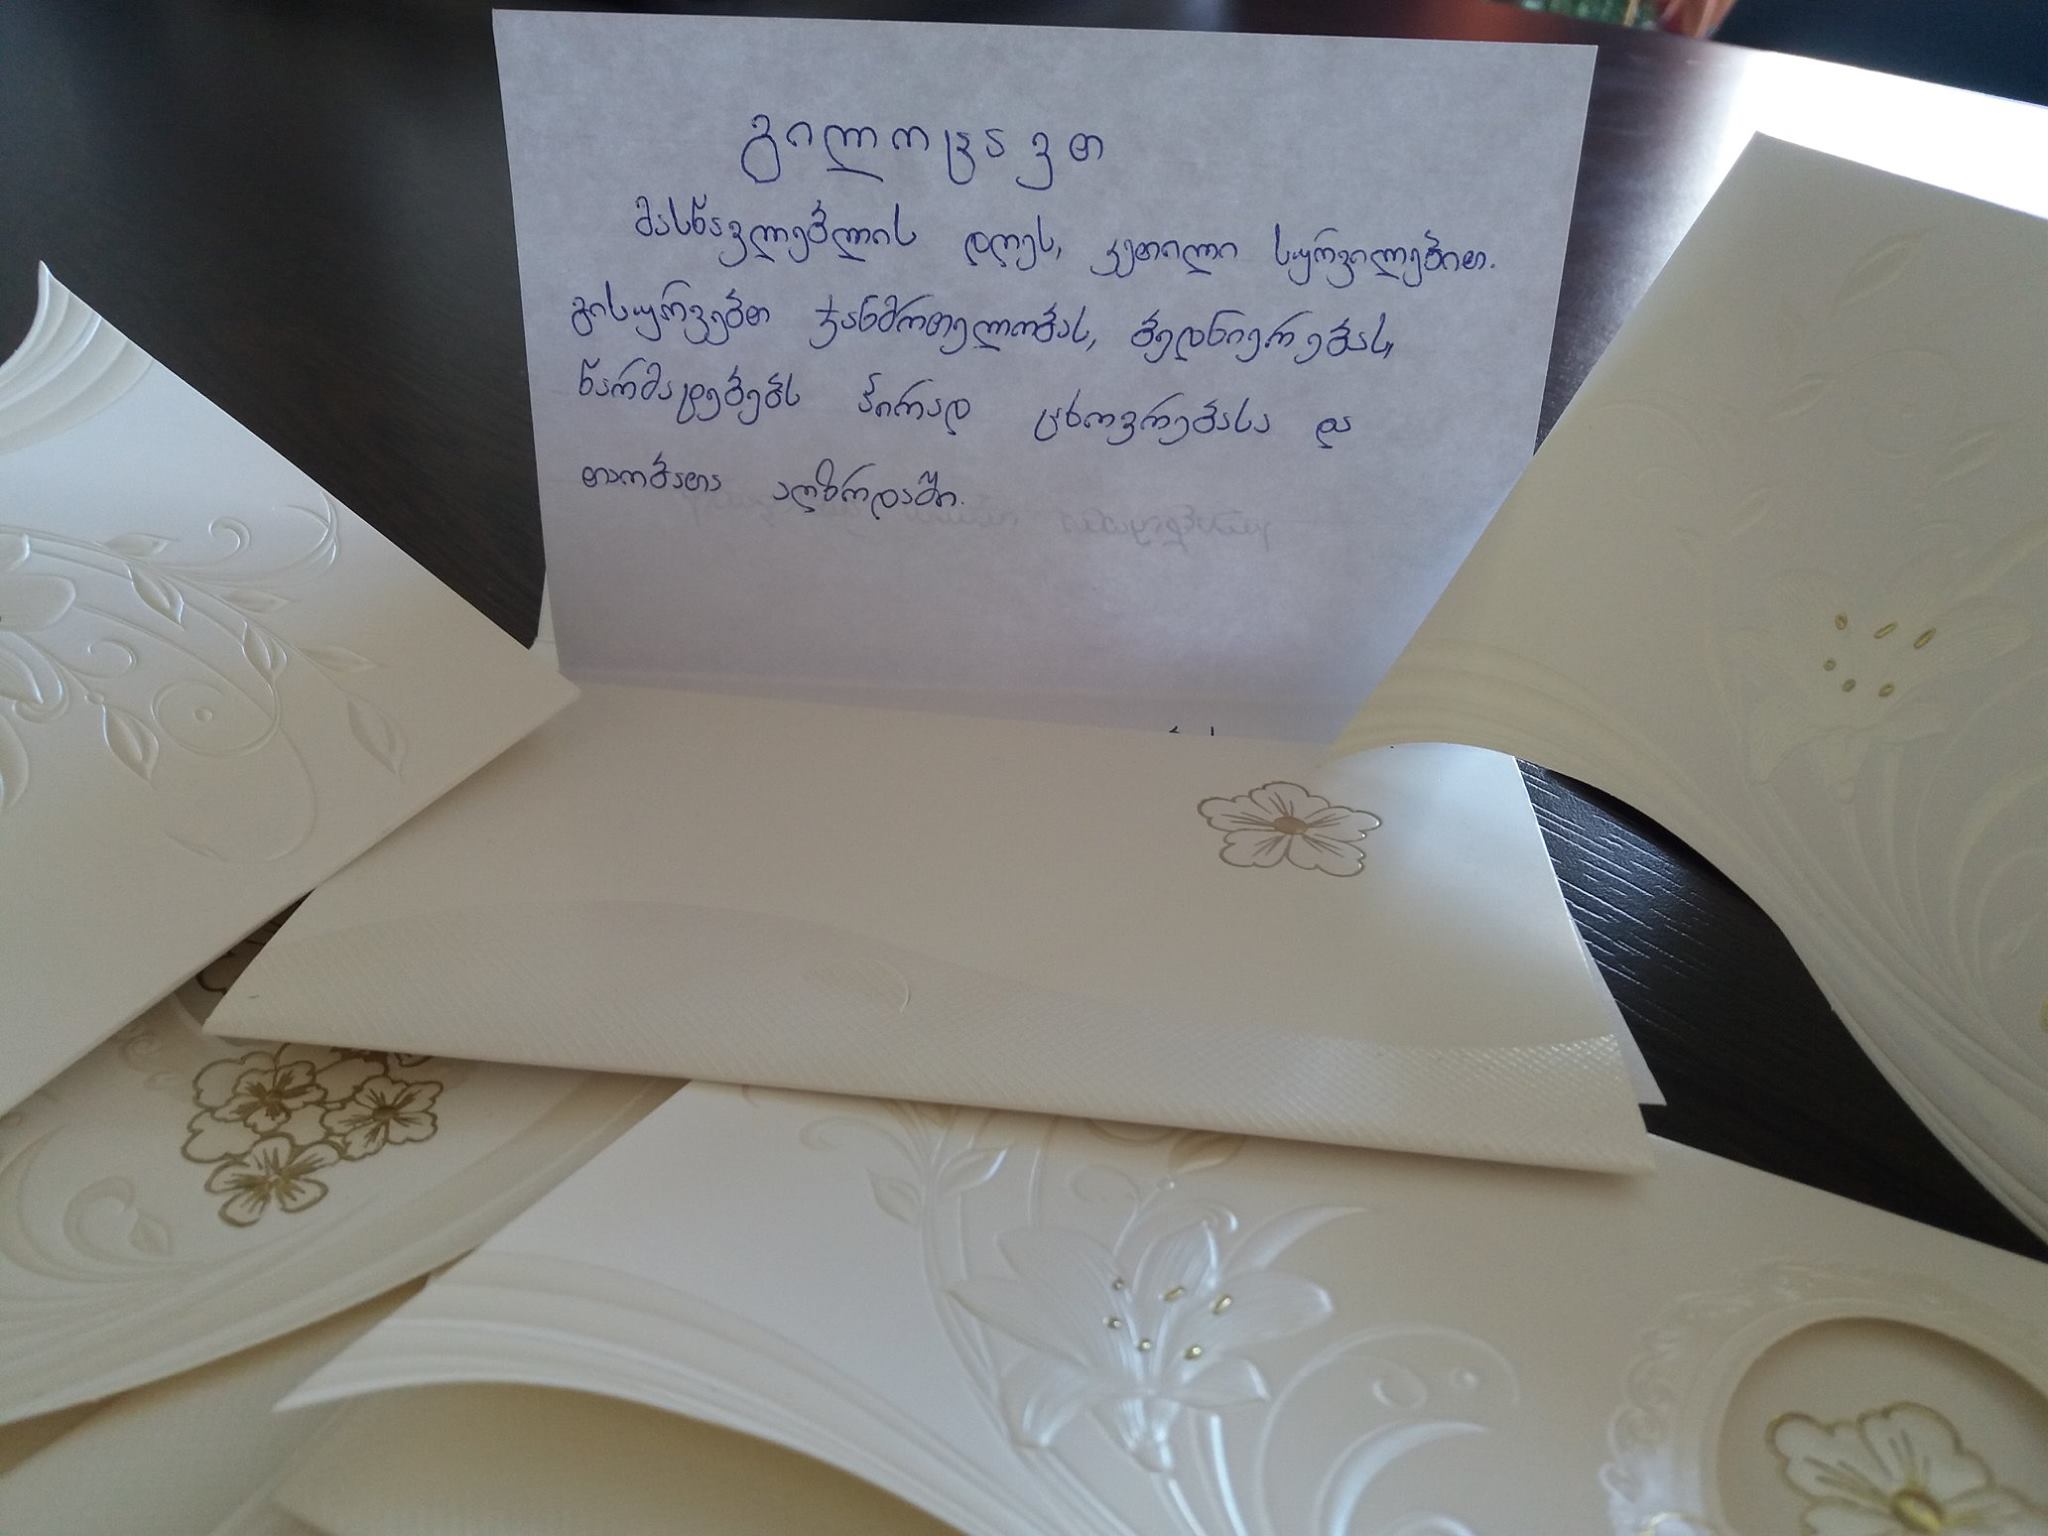 გილოცავთ
მასწავლებლის დღეს, კეთილი სურვილებით.
გისურვებთ ჯანმრთელობას, ბედნიერებას,
წარმატებებს პირად ცხოვრებასა და
თაობათა აღზრდაში.